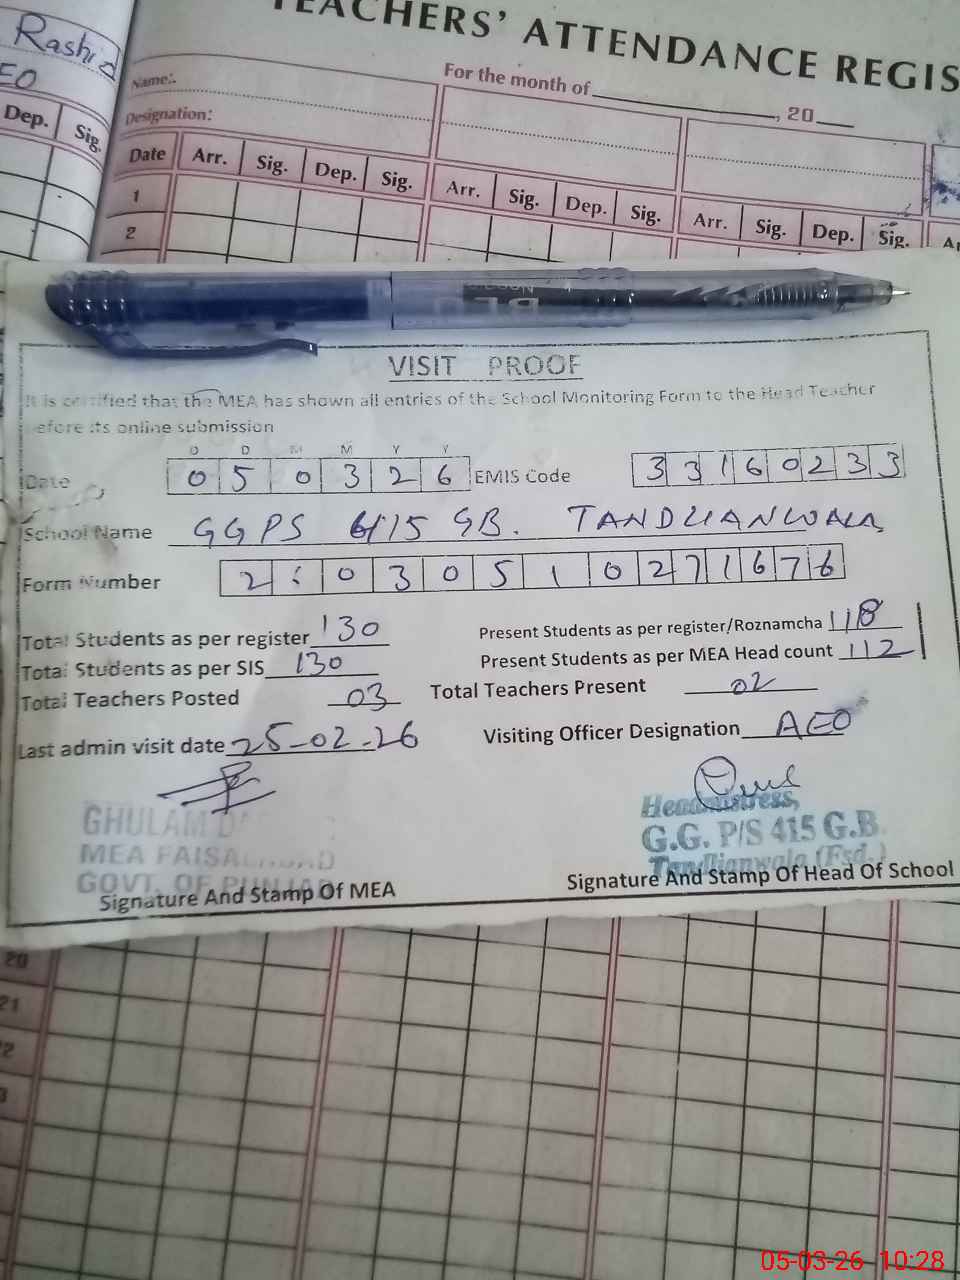 Rashid
EO
Dep. Sig.
TEACHERS' ATTENDANCE REGIS
Name:
For the month of ____, 20__
Designation:
Date Arr. Sig. Dep. Sig. Arr. Sig. Dep. Sig. Arr. Sig. Dep. Sig.
1
2
VISIT PROOF
It is certified that the MEA has shown all entries of the School Monitoring Form to the Head Teacher
before its online submission
D D M M Y Y
Date 0 5 0 3 2 6 EMIS Code 3 3 1 6 0 2 3 3
School Name GGPS 415 GB. TANDLIANWALA
Form Number 2 6 0 3 0 5 1 0 2 7 1 6 7 6
Total Students as per register 130 Present Students as per register/Roznamcha 118
Total Students as per SIS 130 Present Students as per MEA Head count 112
Total Teachers Posted 03 Total Teachers Present 02
Last admin visit date 25-02-26 Visiting Officer Designation AEO
GHULAM
MEA FAISALABAD
GOVT. OF PUNJAB
Signature And Stamp Of MEA
Headmistress,
G.G. P/S 415 G.B.
Tandlianwala (Fsd.)
Signature And Stamp Of Head Of School
20
21
05-03-26 10:28